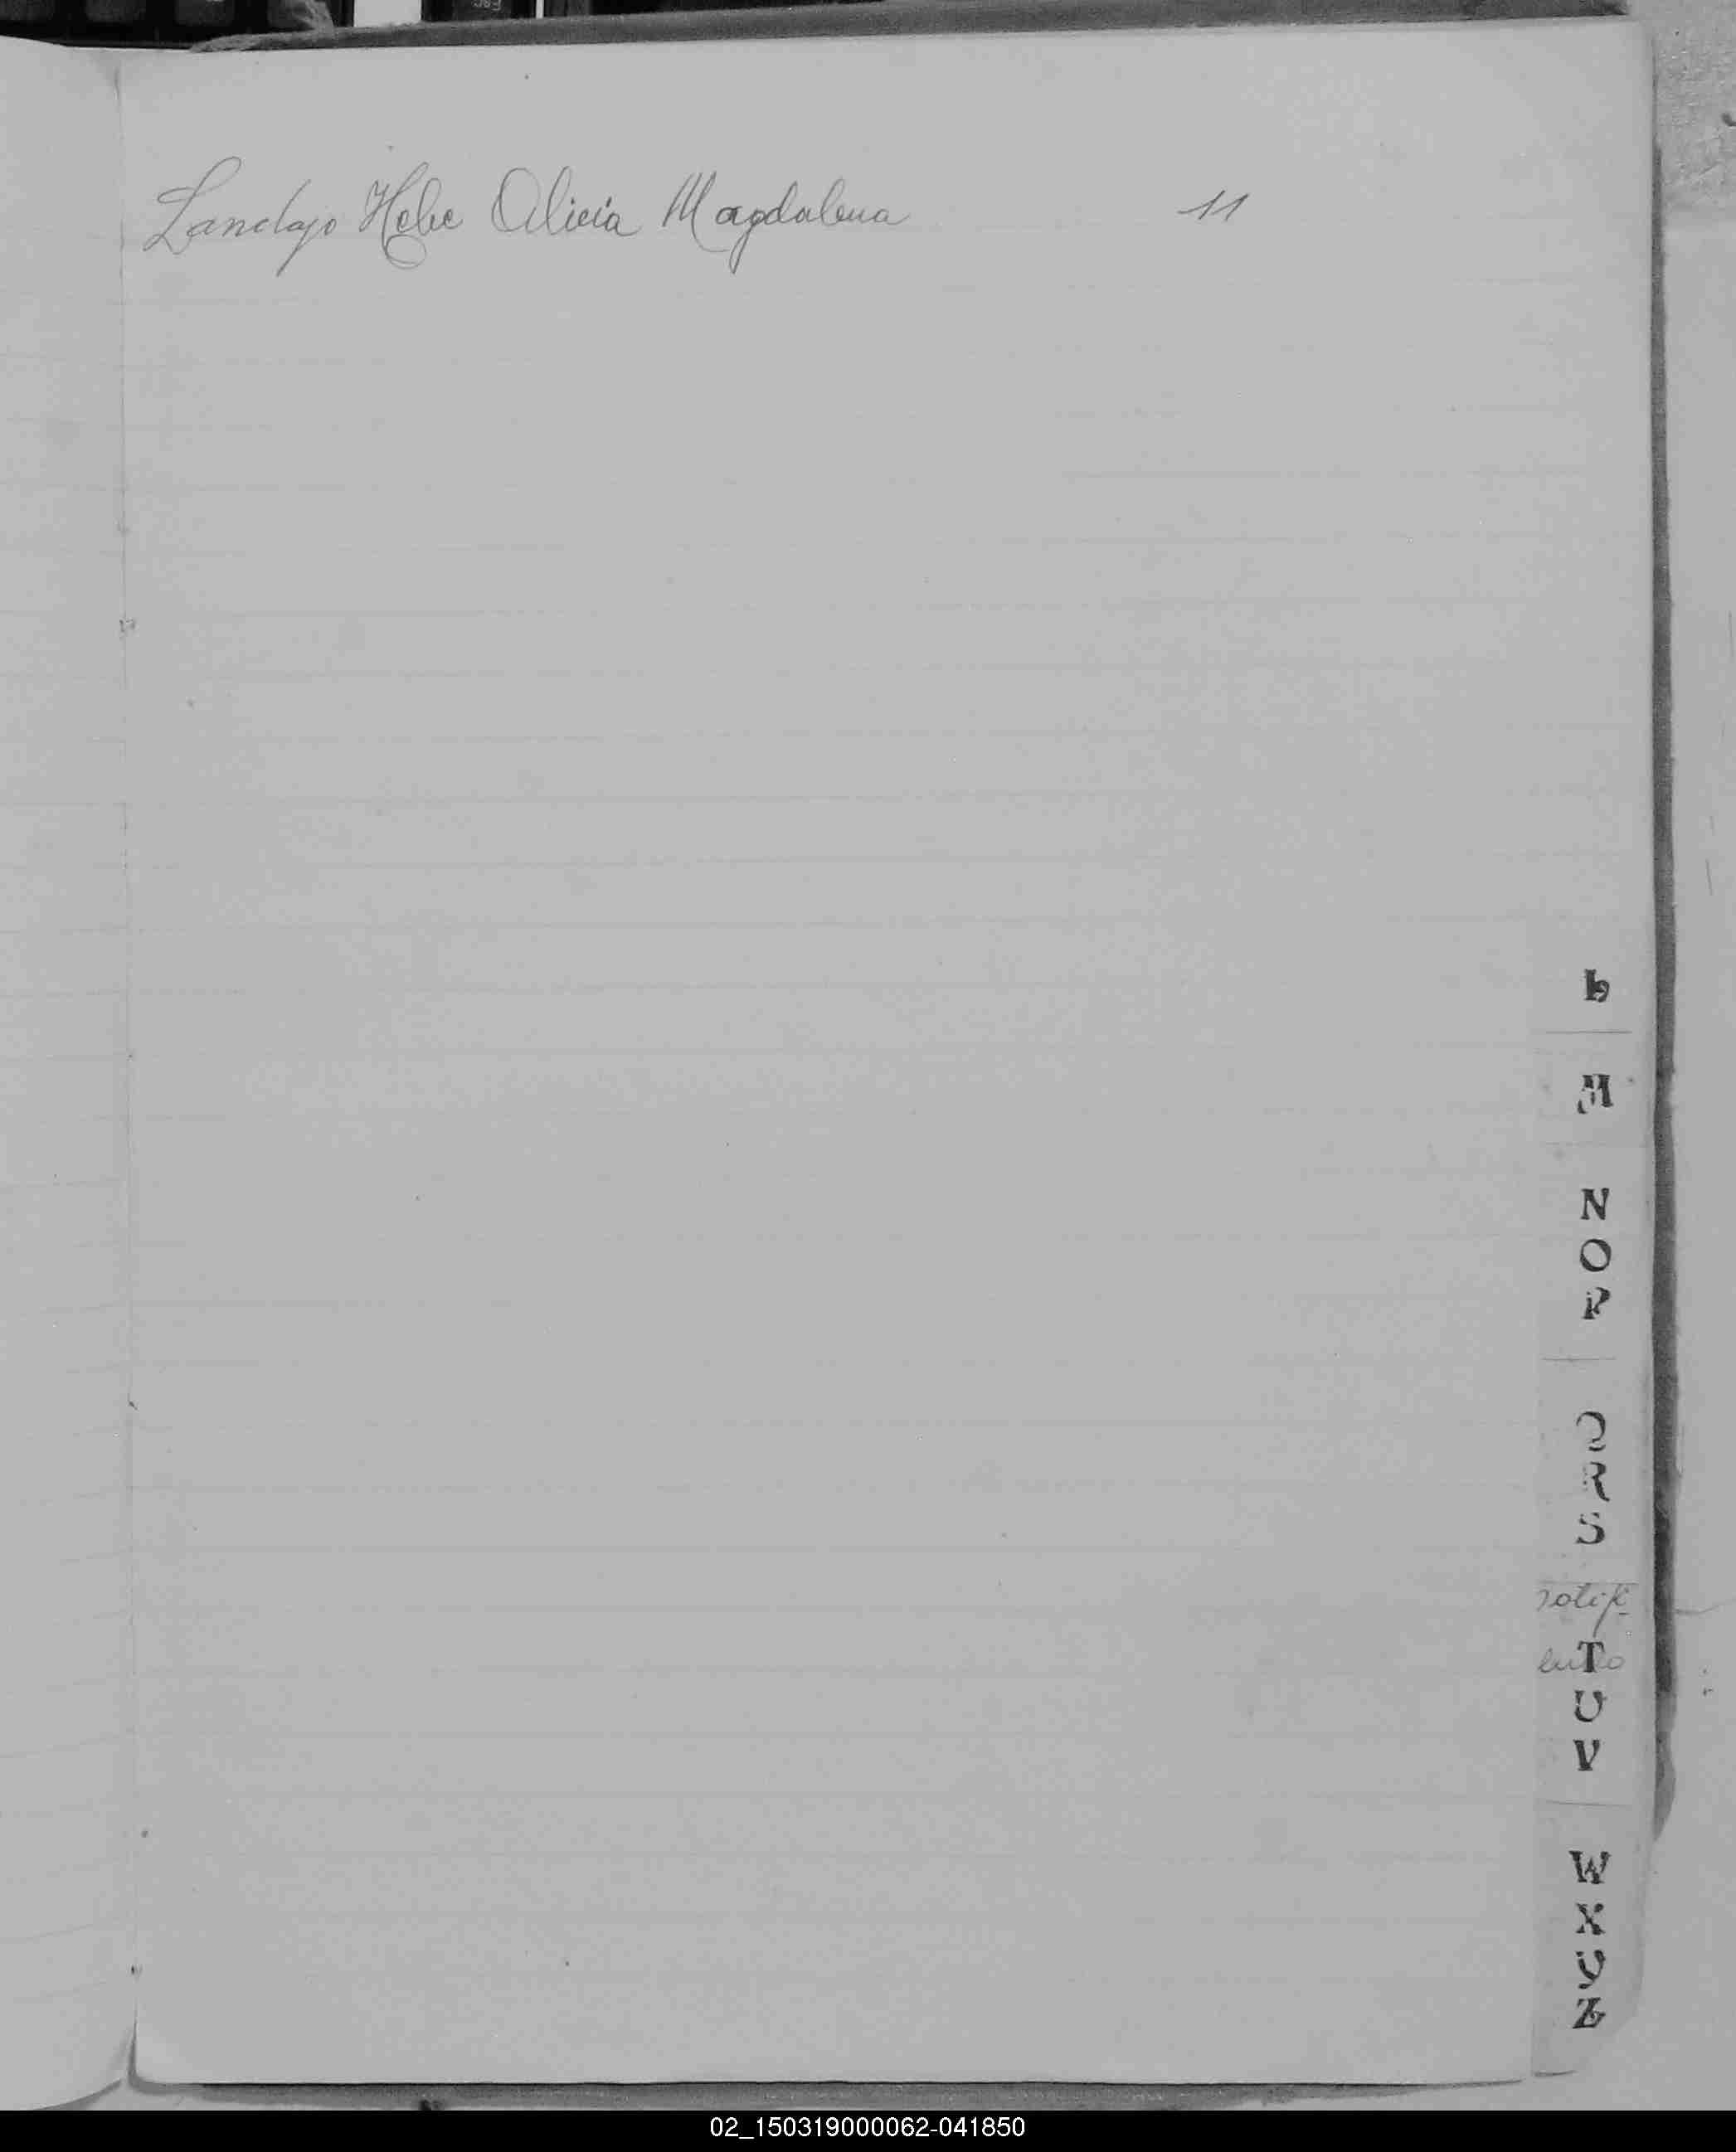 Landajo Hebe Alicia Magdalena 11
L
M
N
O
P
Q
R
S
T
U
V
W
X
Y
Z
02_150319000062-041850